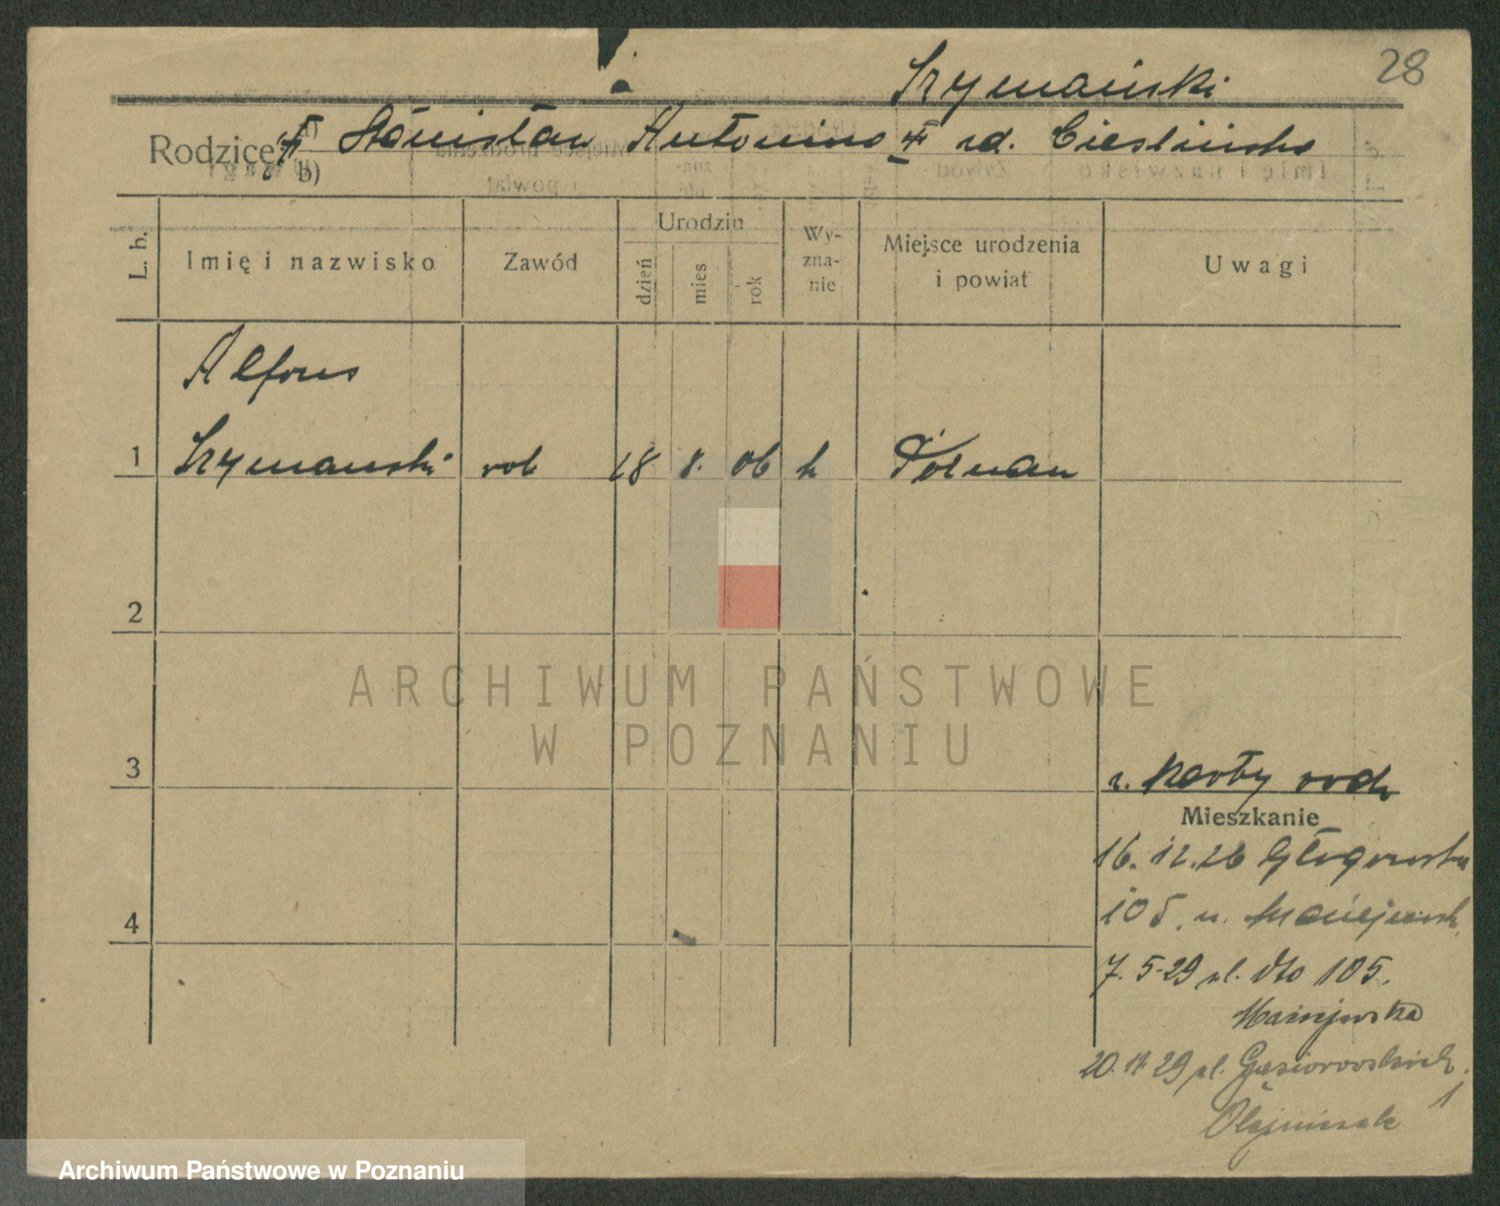 28
Szymański
Rodzice: a) Stanisław Antonina rd. Cieślińska
b)
L. b.
Imię i nazwisko
Zawód
Urodzin
dzień
mies
rok
Wy-
zna-
nie
Miejsce urodzenia
i powiat
Uwagi
Alfons
1 Szymański rob 18 8. 06 k Poznań
2
ARCHIWUM PAŃSTWOWE
W POZNANIU
3
z. karty rodz
Mieszkanie
16. 12. 26 Głogowska
105. u. Maciejewsk.
7. 5-29 ul. dto 105.
Maciejewska
20. 11. 29 ul. Gąsiorowskich
1
Olejniczak
4
Archiwum Państwowe w Poznaniu